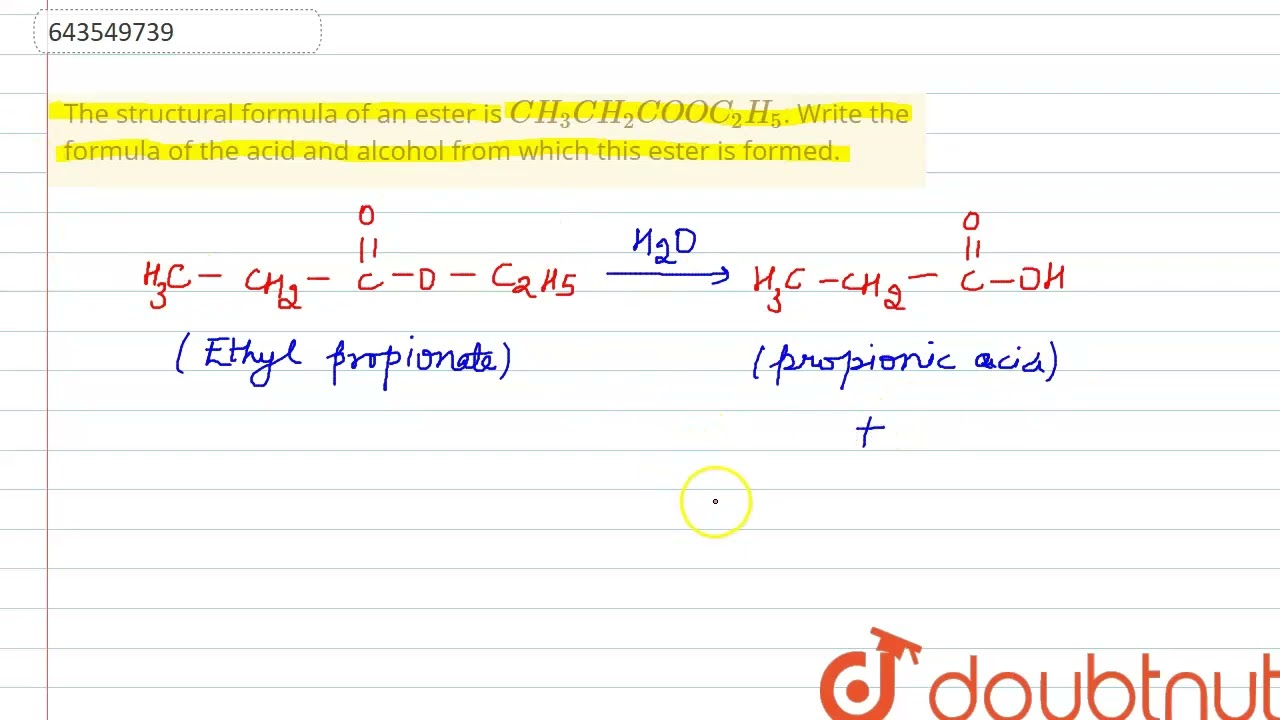 643549739
The structural formula of an ester is CH₃CH₂COOC₂H₅. Write the
formula of the acid and alcohol from which this ester is formed.
O H₂O O
H₃C – CH₂ – C – O – C₂H₅ → H₃C – CH₂ – C – OH
(Ethyl propionate) (propionic acid)
+
doubtnut